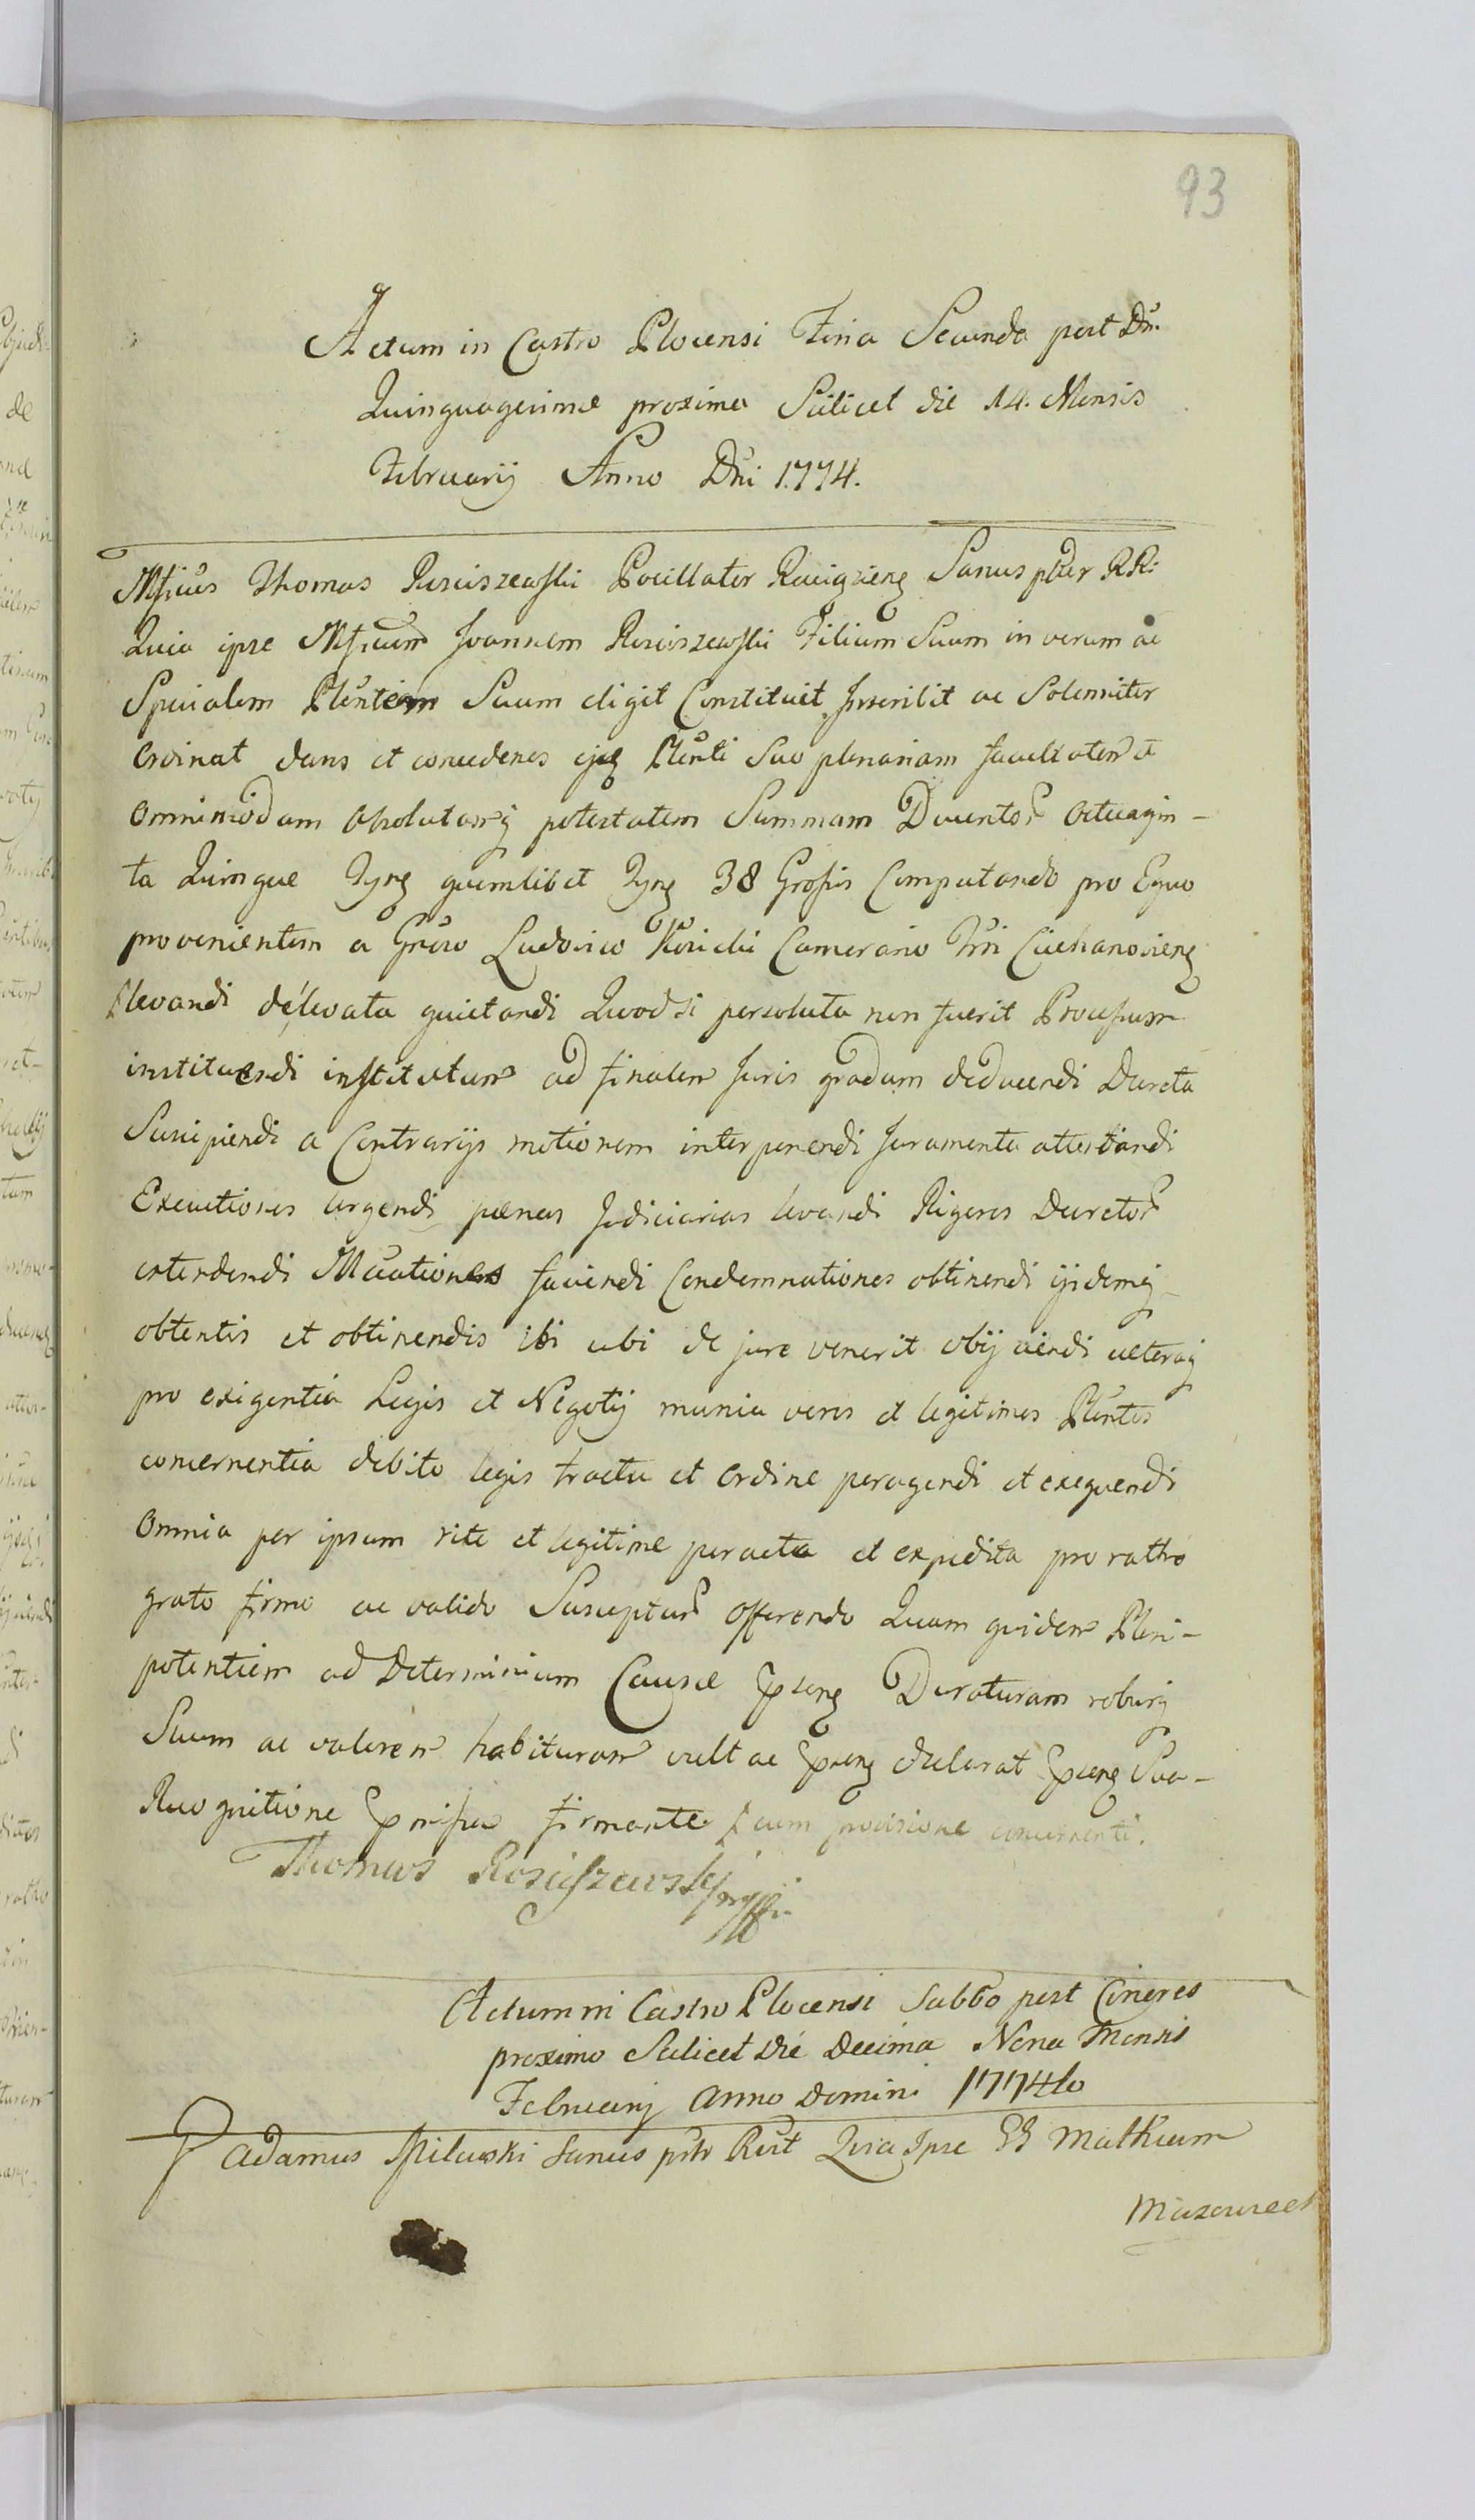 93
Actum in Castro Plocensi Feria Secunda post Dn̄.
Quinquagesimæ proxima Scilicet die 14. Mensis
Februarij Anno Dn̄i 1774.
Mficus Thomas Rosciszewski Pocillator Raciązieng Sanus pblr RR:
Quia ipse Mficum Joannem Rosciszewski Filium Suum in verum ac
Specialem Plentem Suum eligit Constituit Inscribit ac Solenniter
Ordinat dans et concedens ejq Plenti Suo plenariam facultatem et
Omnimodam Absolutamq potestatem Summam Ducentor Octuagin-
ta Quinque Tynf quemlibet Tynf 38 Grossis Computando pro Equo
provenientem a Groso Ludovico Kosicki Camerario Trri Ciechanovieng
levandi de levata quietandi Quodsi persoluta non fuerit Processum
instituendi institutum ad finalem Juris gradum deducendi Decreta
Suscipiendi a Contrarijs motionem interponendi Juramenta attestandi
Executiones urgendi pænas Judiciarias levandi Rigores Decretor
extendendi Mcationes faciendi Condemnationes obtinendi ijsdemq
obtentis et obtinendis ibi ubi de jure venerit obijciendi ceteraq
pro exigentia Legis et Negotij munia veros et legitimos Plentes
concernentia debito legis tractu et Ordine peragendi et exequendi
Omnia per ipsum rite et legitime peracta et expedita pro ratho
grato firmo ac valido Susceptur Offerendo Quam quidem Pleni-
potentiam ad Determinium Causæ Pseng Duraturam roburq
Suum ac valorem habituram vult ac Pseng declarat Pseng Sua-
Recognitione Pmissa firmante cum provisione concernenti.
Thomas Rosciszewski mpp
Actum in Castro Plocensi Sabbo post Cineres
proximo Scilicet Die Decima Nona Mensis
Februarij Anno Domini 1774to
G Adamus Milewski Sanus pblr Rcit Quia Ipse GG Mathæum
Mazowiec